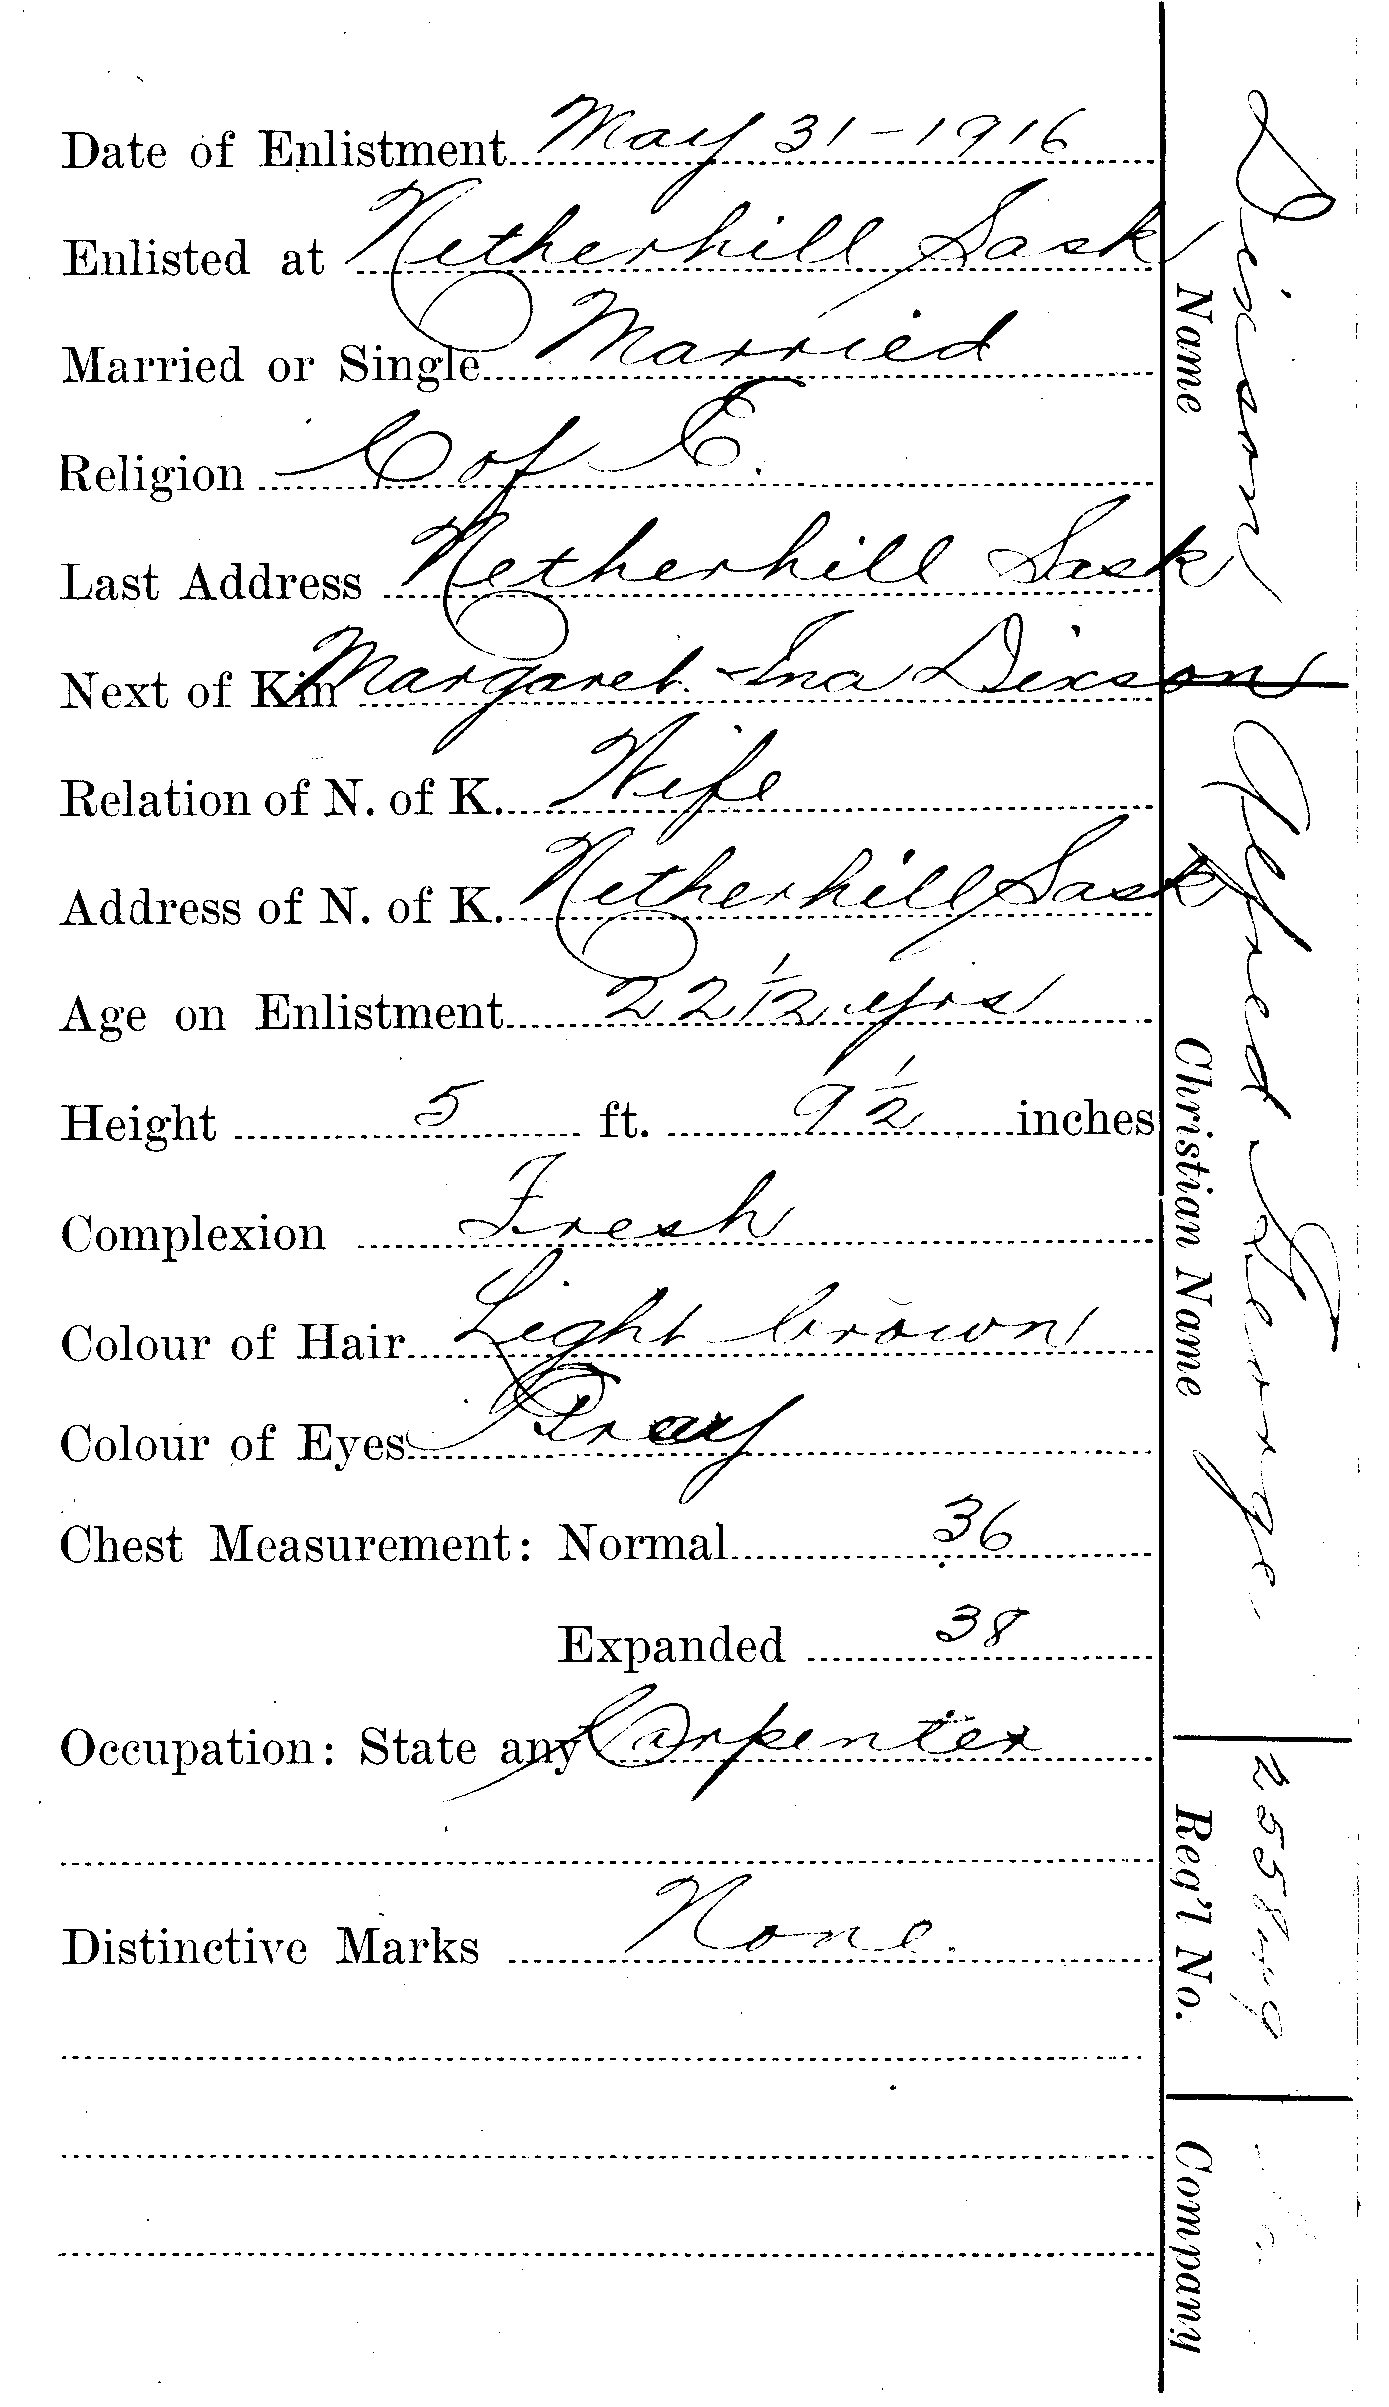 Date of Enlistment May 31-1916
Enlisted at Netherhill Sask
Married or Single Married
Religion C of E.
Last Address Netherhill Sask
Next of Kin Margaret Ina Dixson
Relation of N. of K. Wife
Address of N. of K. Netherhill Sask
Age on Enlistment 22 1/2 yrs
Height 5 ft. 9 1/2 inches
Complexion Fresh
Colour of Hair Light brown
Colour of Eyes Gray
Chest Measurement: Normal 36
Expanded 38
Occupation: State any Carpenter
Distinctive Marks None.
Name Dixson
Christian Name Alfred George
Reg'l No.
Company